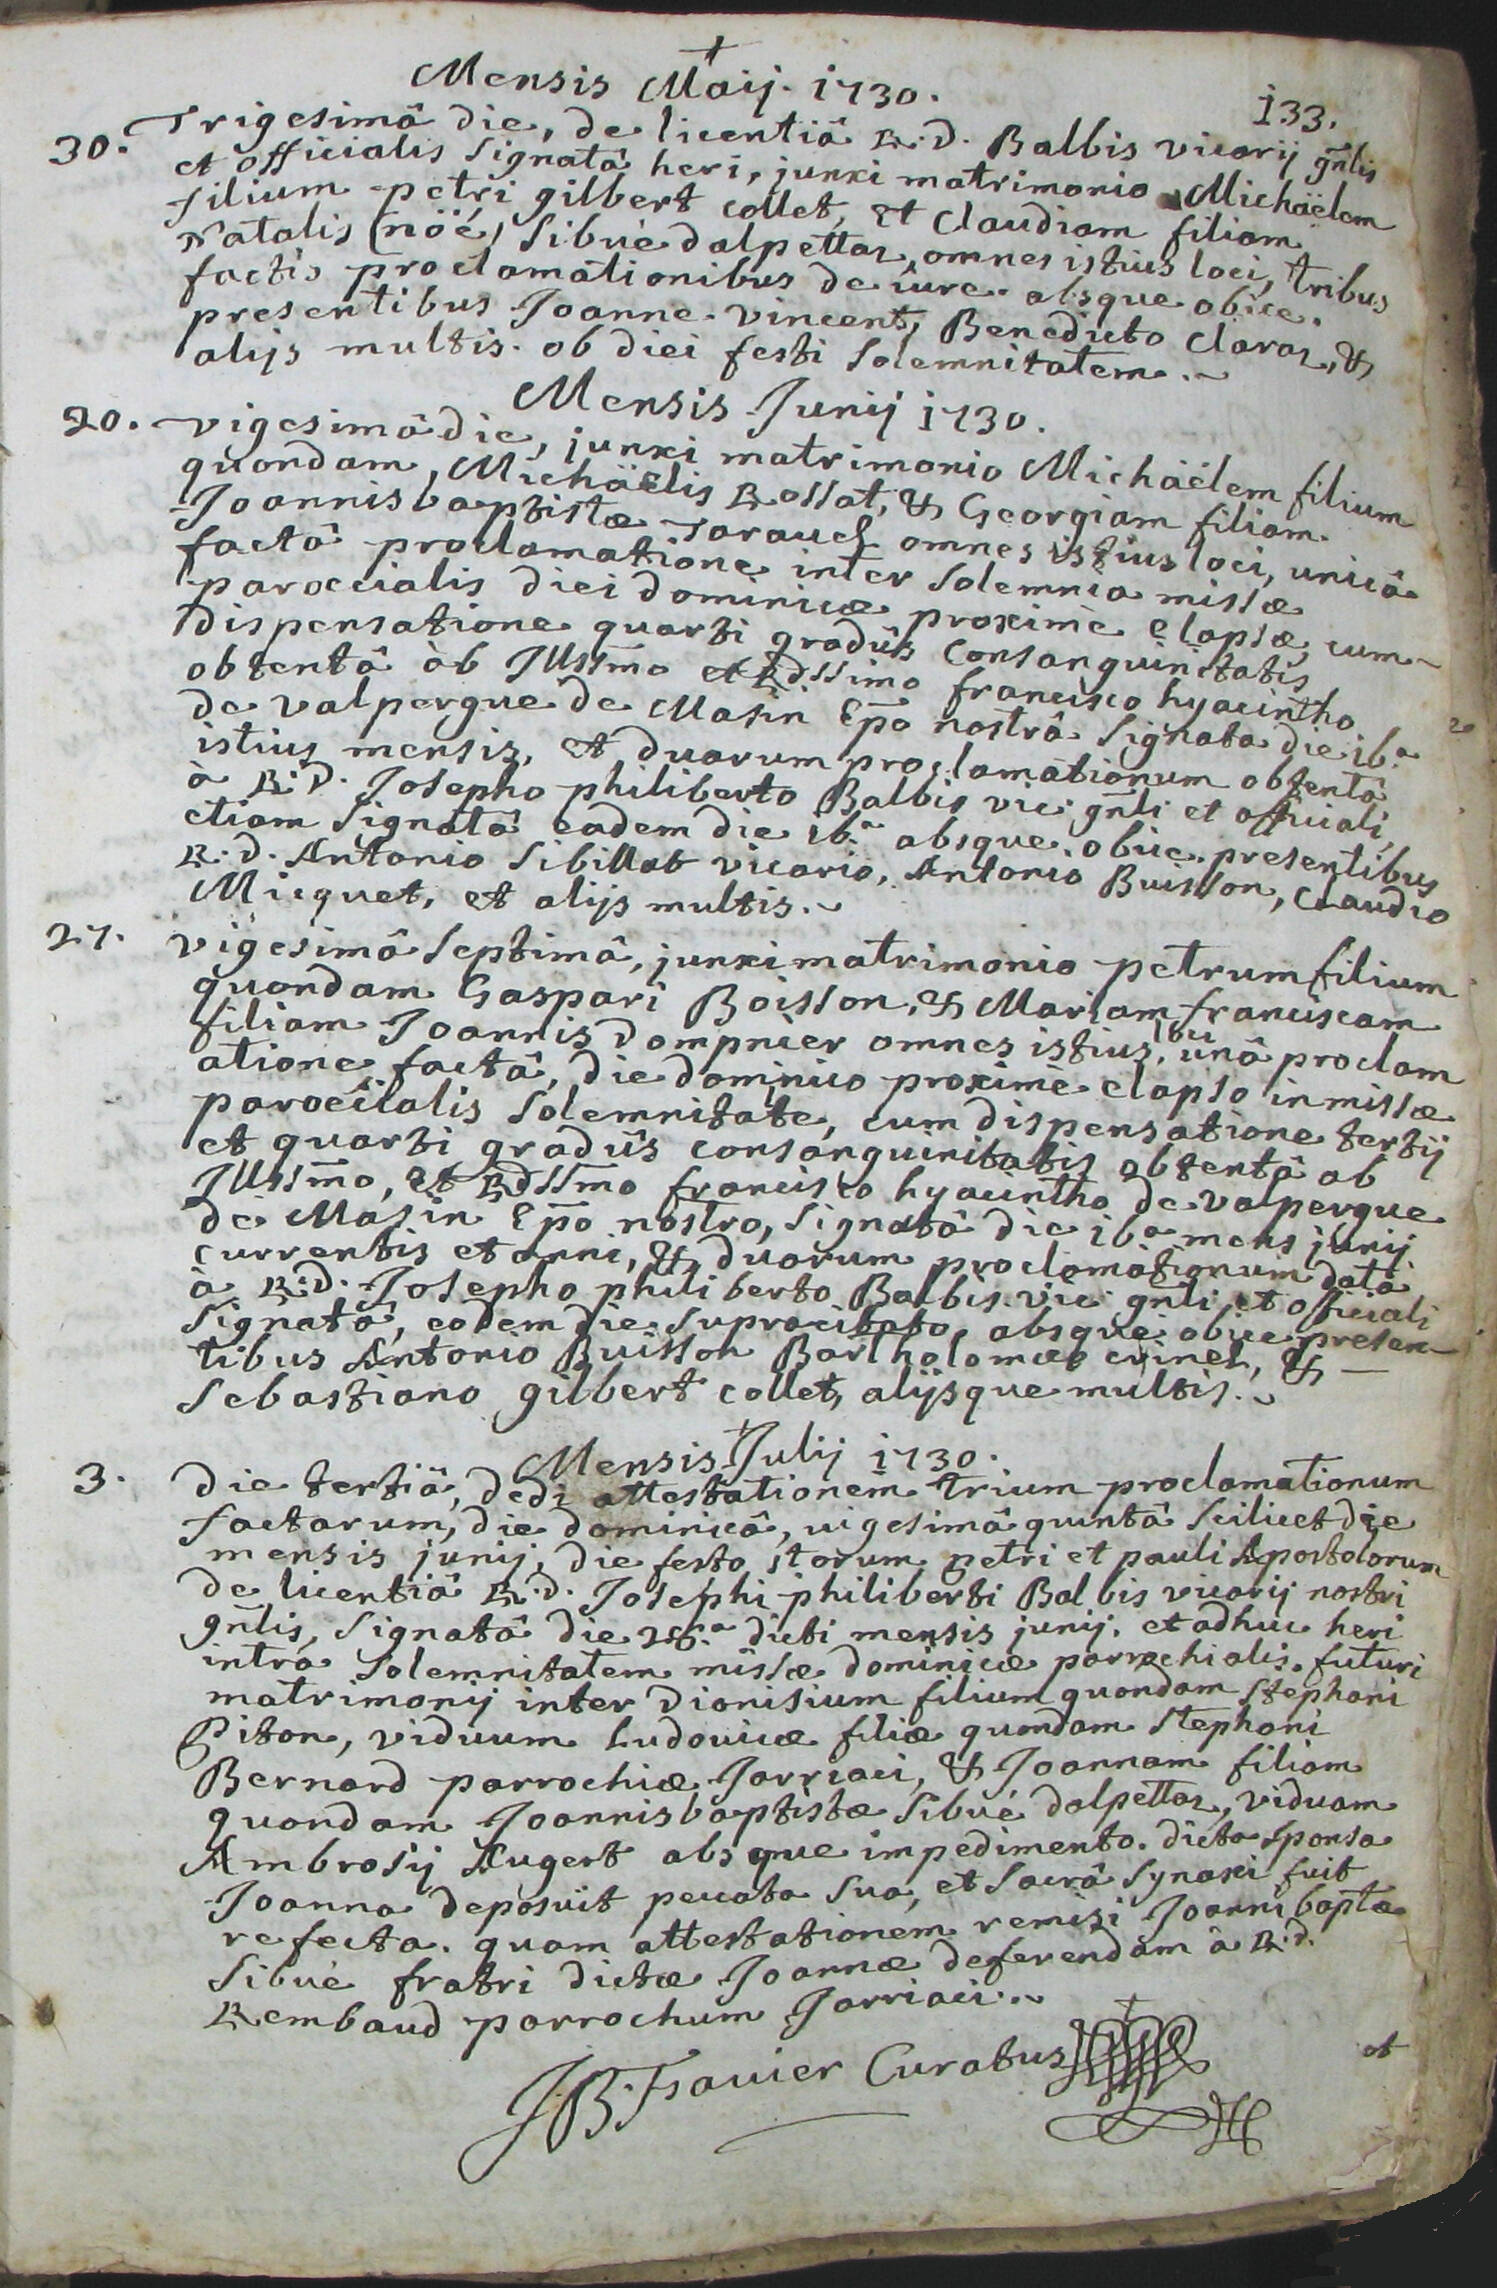 Mensis Maij. 1730.
133.
30. Trigesimâ die, de licentiâ R:D. Balbis vicarij gñlis
et officialis signatâ heri, junxi matrimonio Michäelem
filium petri gilbert collet, et Claudiam filiam
Natalis (nöé) Sibué dalpettaz, omnes istius loci, tribus
factis proclamationibus de iure absque obice.
presentibus Joanne vincent, Benedicto Claraz, &
alijs multis. ob diei festi solemnitatem.
Mensis Junij 1730.
20. vigesimâ die, junxi matrimonio Michäelem filium
quondam, Michäelis Rossat, & Georgiam filiam
Joannisbaptistæ Tarauel omnes istius loci, unicâ
factâ proclamatione inter solemnia missæ
paroccialis diei dominicæ proximè elapsæ, cum
dispensatione quarti gradûs consanguinitatis
obtentâ àb Illsm̃o et Rdssimo francisco hyacintho
de valpergue de Masin Ep̃o nostrâ signata die 16.a
istius mensis, et duarum proclamationum obtentâ
à R:D. Josepho philiberto Balbis vic: gñli et officiali,
etiam signatâ eadem die 16.a absque obice. presentibus
R:D. Antonio Sibillat vicario, Antonio Buisson, Claudio
Micquet, et alijs multis.
27. vigesimâ septimâ, junxi matrimonio petrum filium
quondam Gaspari Boisson, & Mariam franciscam
filiam Joannis Dompnier omnes istius loci, unâ proclam
atione factâ, die dominico proximè elapso in missæ
paroccialis solemnitate, cum dispensatione tertij
et quarti gradûs consanguinitatis obtentâ ab
Illsm̃o, et Rdssm̃o francisco hyacintho de valpergue
de Masin Ep̃o nostro, signatâ die 16a mens junij
currentis et anni, & duarum proclamationum datâ
à R:D. Josepho philiberto Balbis vic: gñli, et officiali
signatâ, eodem die supracitato, absque obice presen
tibus Antonio Buisson Bartholomæo crinel, &
Sebastiano gilbert collet, alijsque multis.
Mensis Julij 1730.
3. die tertiâ, dedi attestationem trium proclamationum
factarum, die dominicâ, uigesimâ quintâ scilicet die
mensis junij, die festo storum petri et pauli Apostolorum
de licentiâ R:D. Josephi philiberti Balbis vicarij nostri
gñlis, signatâ die 28.a dicti mensis junij. et adhuc heri
intra solemnitatem missæ dominicæ parrochialis, futuri
matrimonij inter Dionisium filium quondam Stephani
Piton, viduum Ludovicæ filiæ quondam Stephani
Bernard parrochiæ Jarriaci, & Joannam filiam
quondam Joannisbaptistæ Sibué dalpettaz, viduam
Ambrosij Augert absque impedimento. dicta sponsa
Joanna deposuit peccata sua, et sacrâ synaxi fuit
refecta. quam attestationem remisi Joanni bapta
Sibué fratri dictæ Joannæ deferendam à R:D.
Rembaud parrochum Jarriaci.
JB: Favier Curatus
et